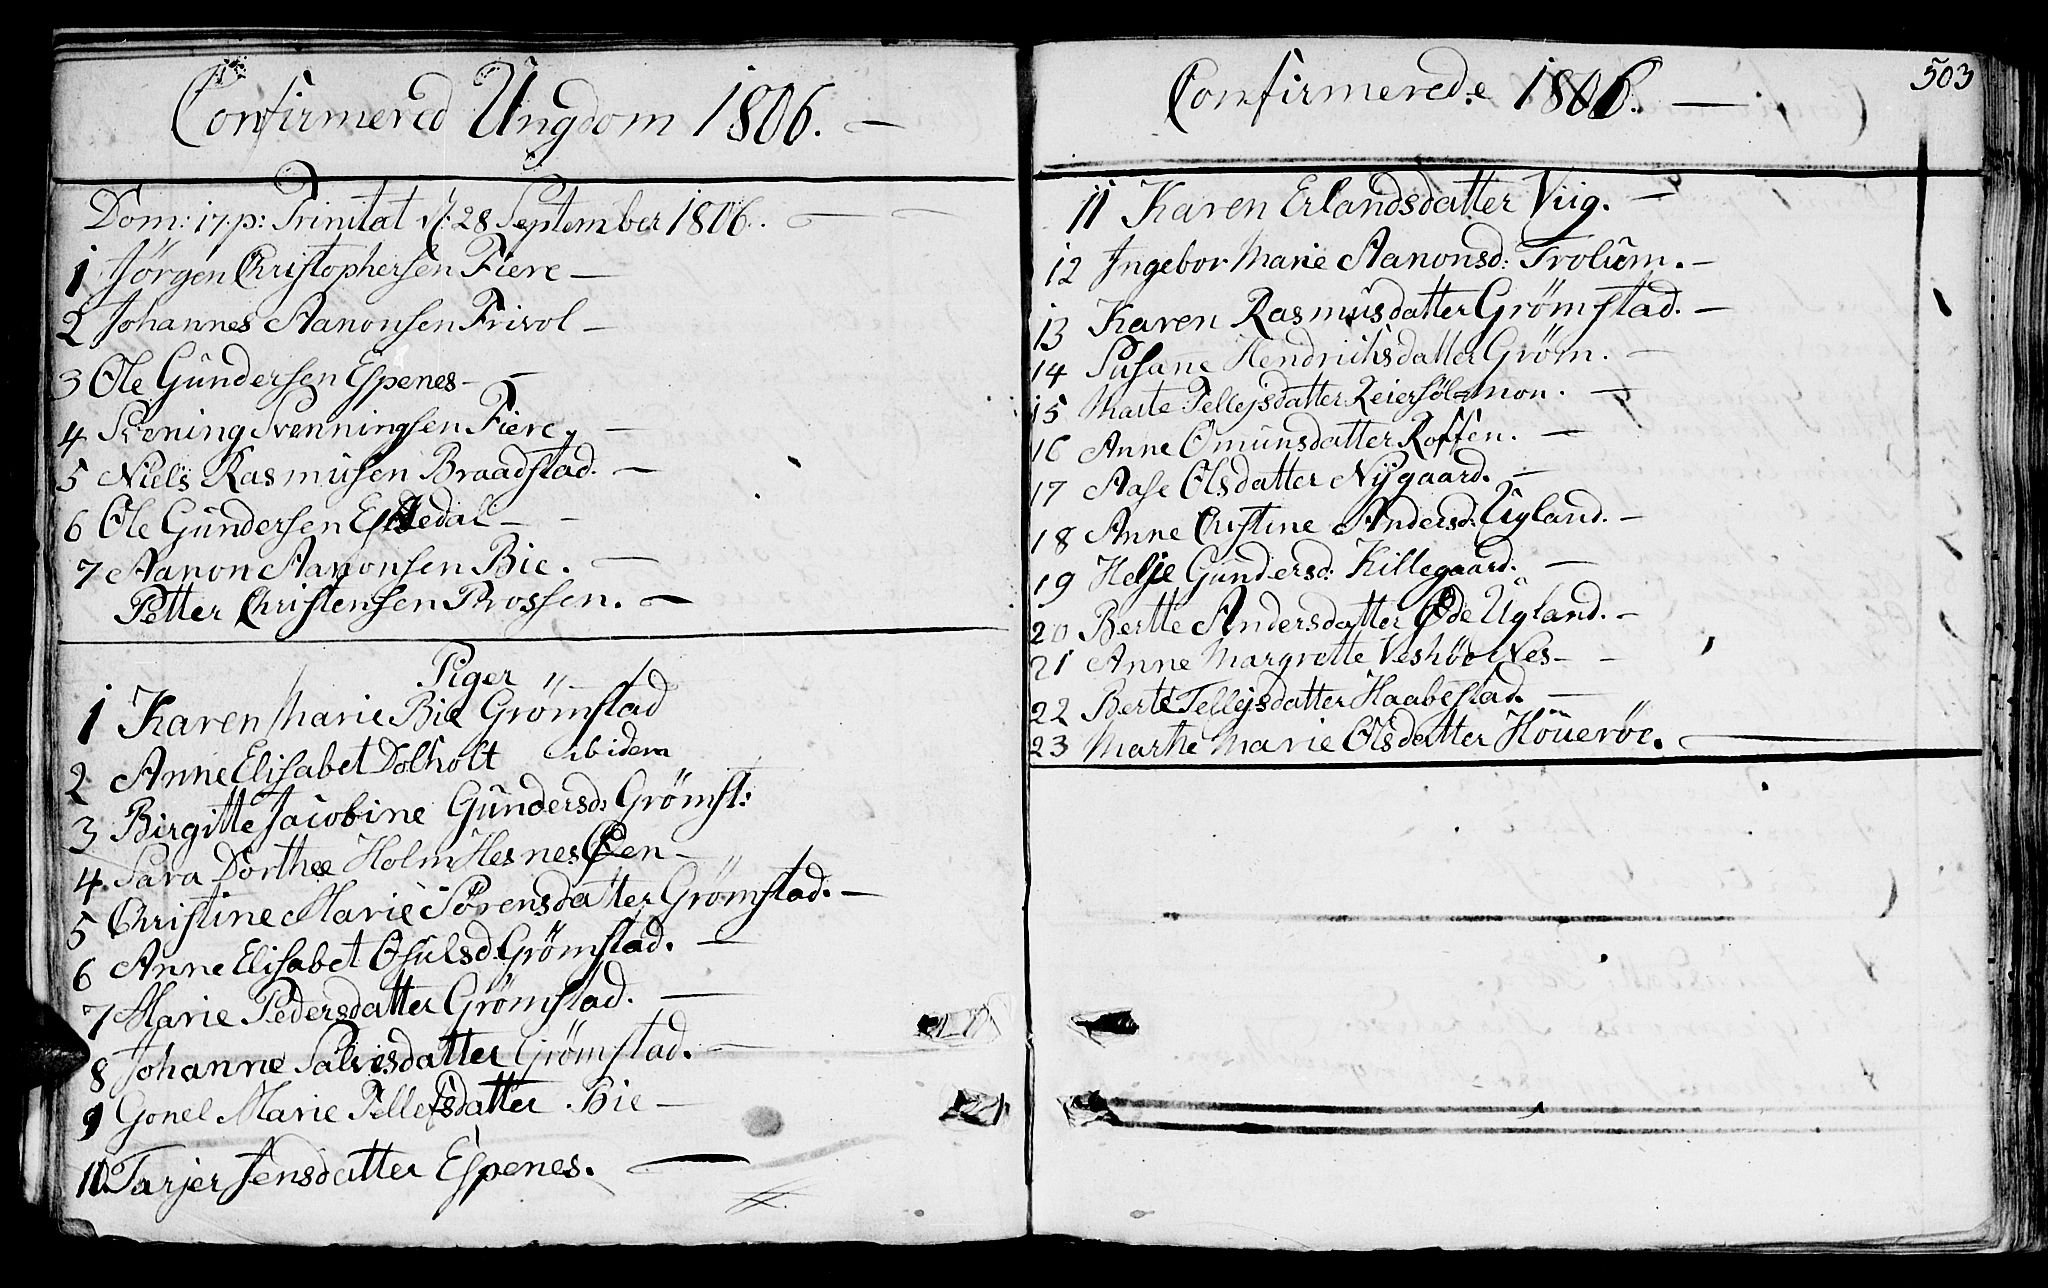 Confirmered Ungdom 1806. —
Dom: 17. p: Trinitat d: 28 September 1806. —
1 Jørgen Christophersen Fiere —
2 Johannes Aanonsen Frivol —
3 Ole Gundersen Espenes —
4 Svening Svenningsen Fiere, —
5 Niels Rasmusen Braadstad. —
6 Ole Gundersen —
7 Aanon Aanonsen Bie. —
Petter Christensen Prossen. —
Piger "
1 Karen Marie Bie Grømstad
2 Anne Elisabet Dolholt ibidem
3 Birgitte Jacobine Gundersd: Grømst:
4. Sara Dorthe Holm Hesnes Øen —
5 Christine Marie Sørensdatter Grømstad. —
6 Anne Elisabet Osulsd: Grømstad. —
7 Marie Pedersdatter Grømstad. —
8 Johanne Salvesdatter Grømstad. —
9 Gonel Marie Tellefsdatter Bie —
10. Tarjer Jensdatter Espenes. —
Confirmerede 1806. —
503
11 Karen Erlandsdatter Viig. —
12 Ingebor Marie Aanonsd: Trolium. —
13 Karen Rasmusdatter Grømstad. —
14 Susane Hendrichsdatter Grøm. —
15 Marte Tellejsdatter Reiersølmon. —
16 Anne Omunsdatter Roffen. —
17 Aase Olsdatter Nÿgaard. —
18 Anne Cristine Andersd: Ugland. —
19 Helje Gundersd: Killegaard. —
20 Berthe Andersdatter Øde Ugland. —
21 Anne Margrette Veshøe Nes —
22 Berte Tellejsdatter Haabestad. —
23 Marthe Marie Olsdatter Houerøe. —